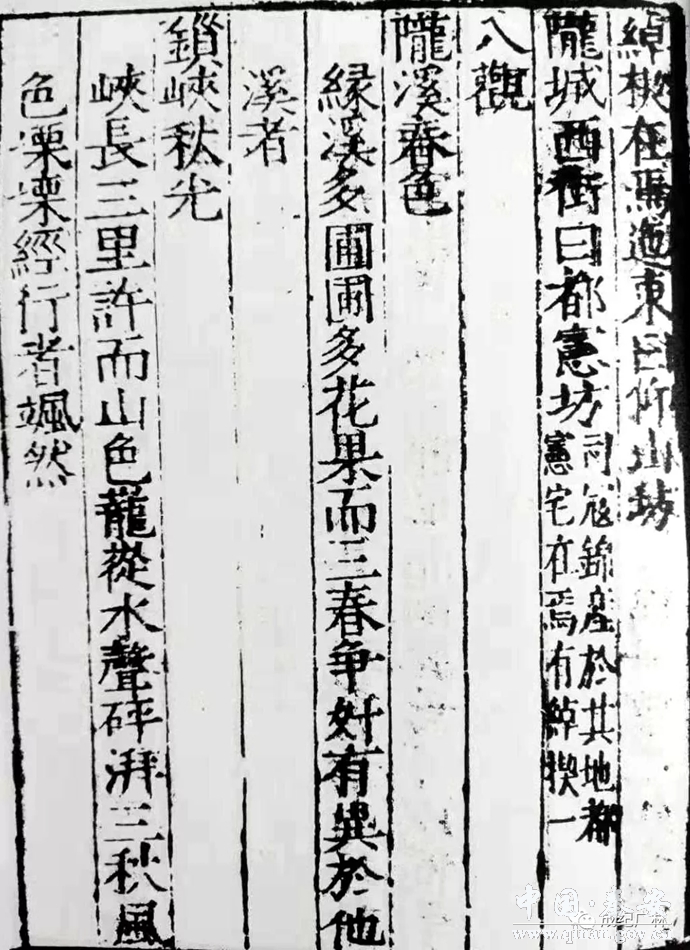 綽楔在焉迤東曰仰山坊
隴城西街曰都憲坊
司寇錦產於其地都
憲宅在焉有綽楔一
八觀
隴溪春色
緣溪多圃圃多花果而三春争妍有異於他
溪者
鎖峽秋光
峽長三里許而山色蘢蓯水聲砰湃三秋風
色慄慄經行者颯然
中国·秦安
www.qinan.gov.cn